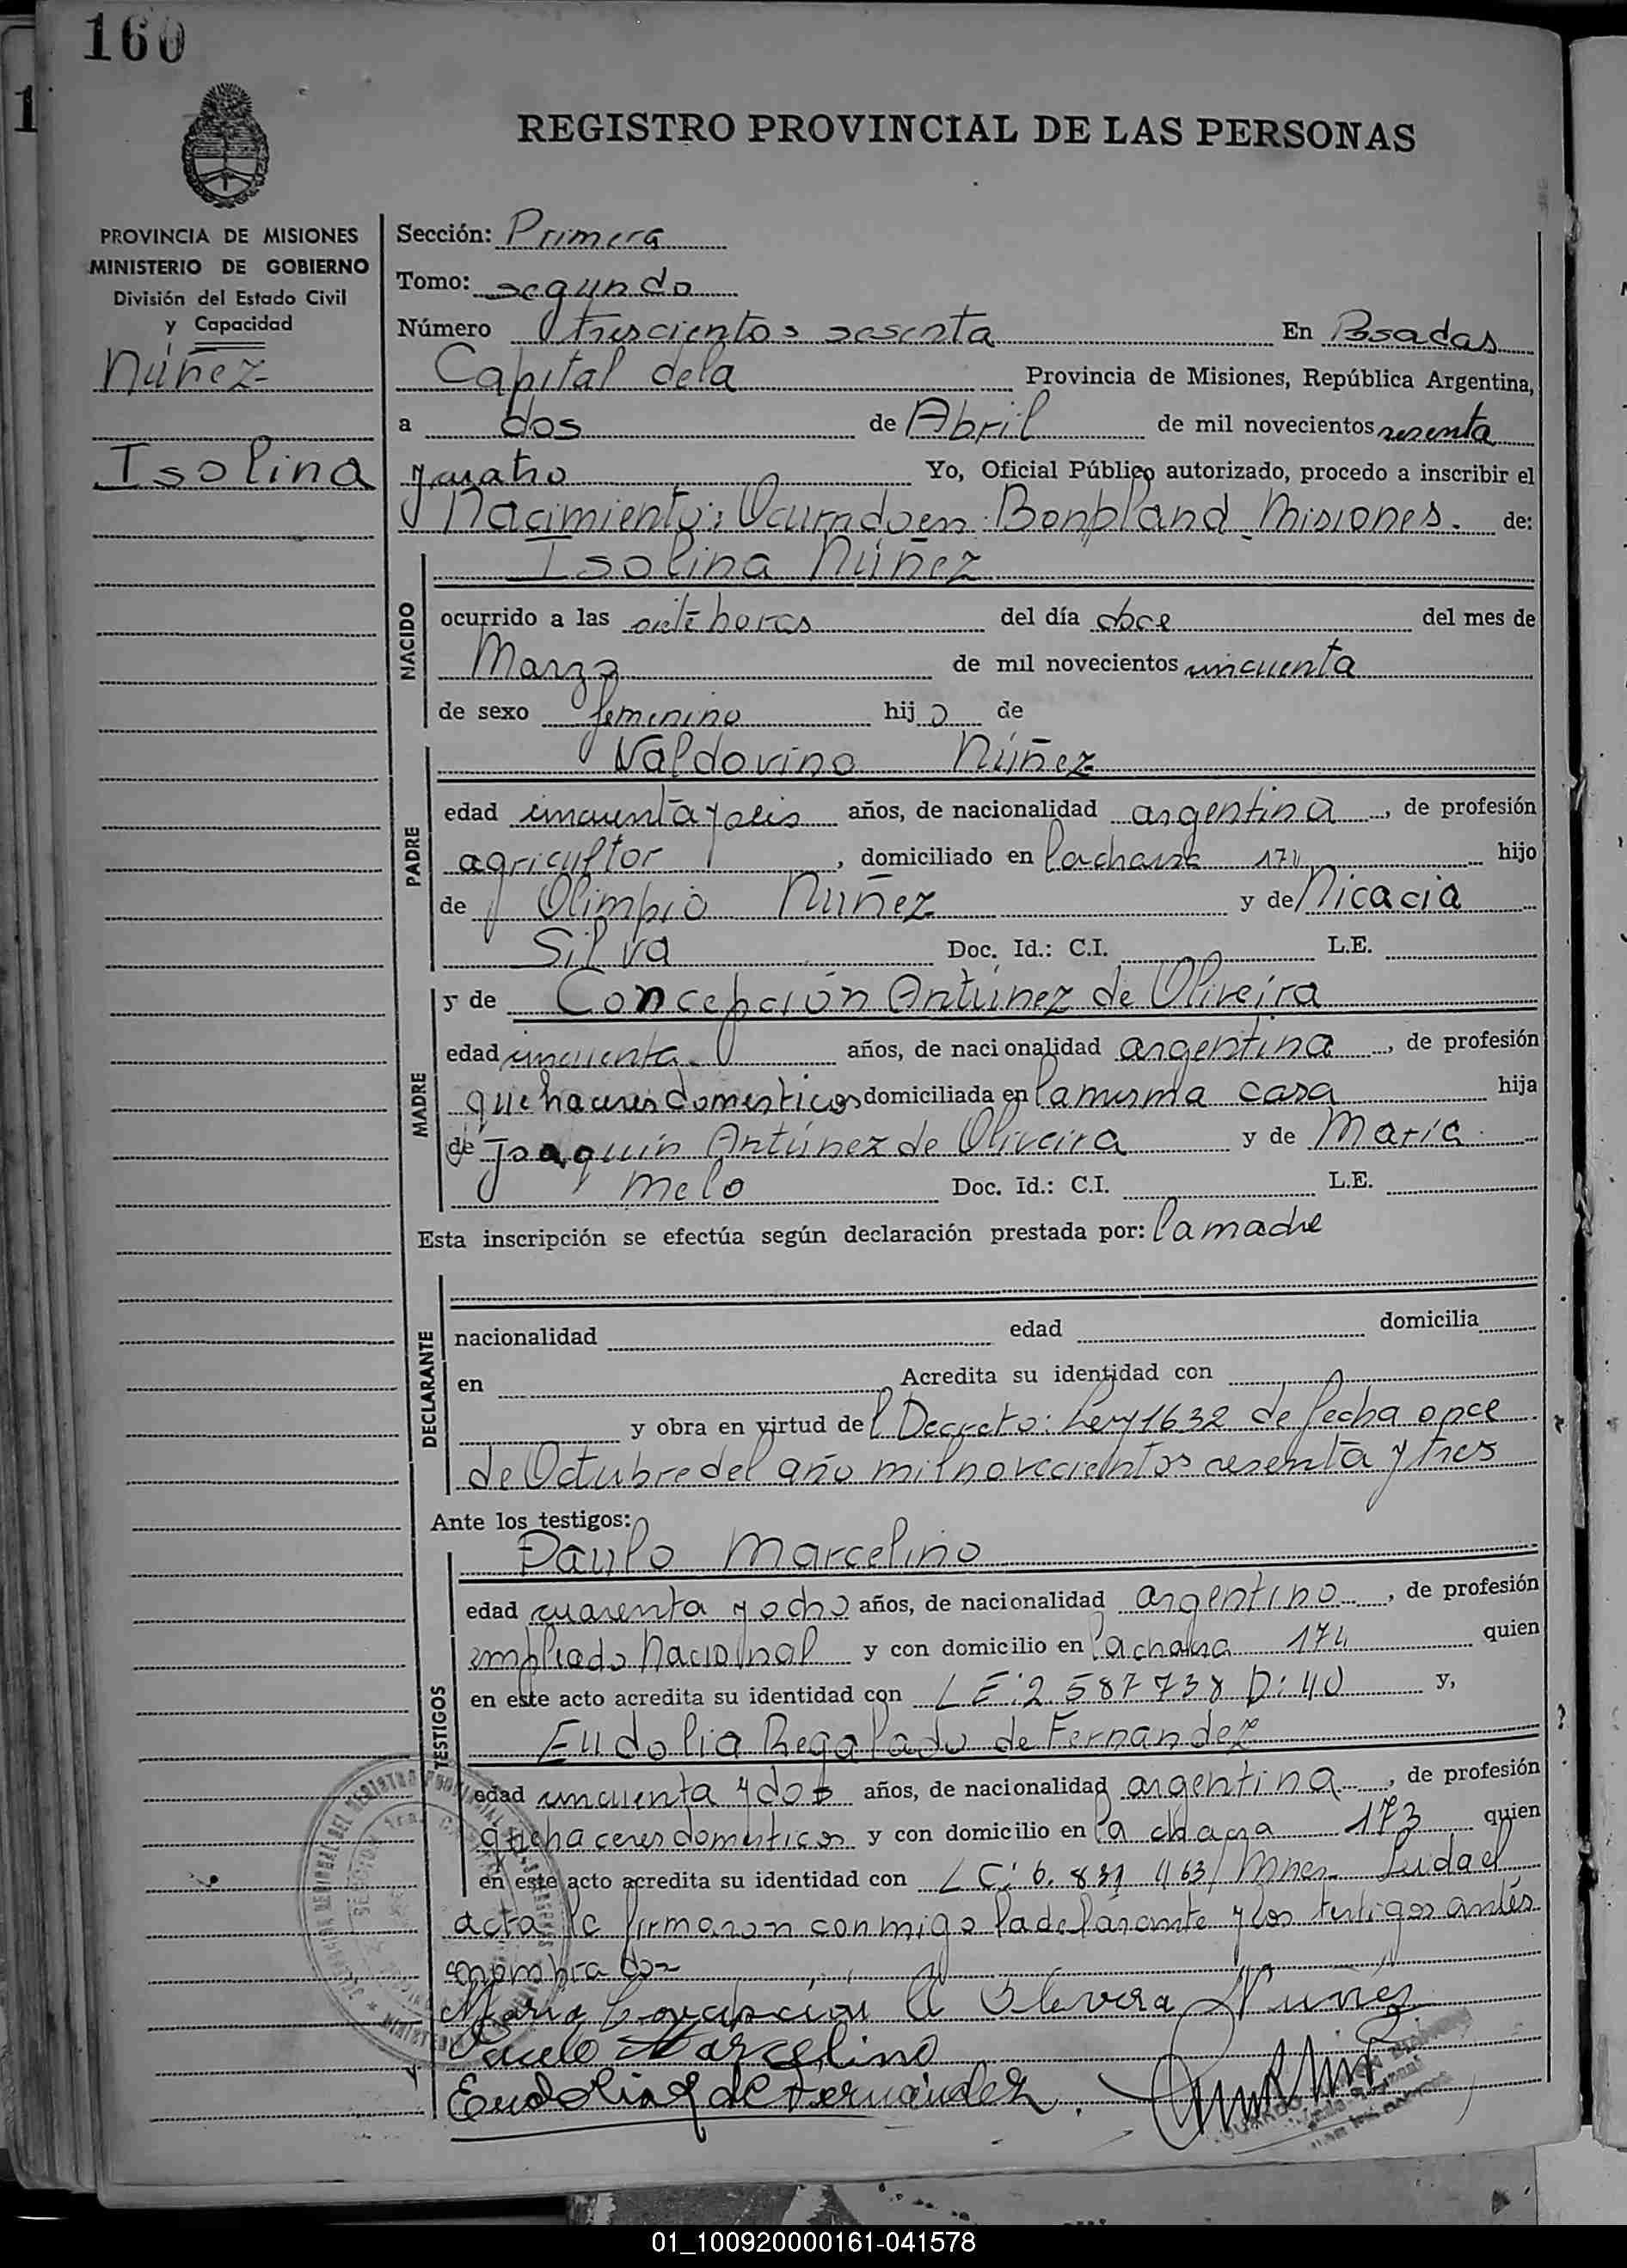 160
1
REGISTRO PROVINCIAL DE LAS PERSONAS
PROVINCIA DE MISIONES
MINISTERIO DE GOBIERNO
División del Estado Civil
y Capacidad
Núñez
Isolina
Sección: Primera
Tomo: segundo
Número trescientos sesenta En Posadas
Capital de la Provincia de Misiones, República Argentina,
a dos de Abril de mil novecientos sesenta
y cuatro Yo, Oficial Público autorizado, procedo a inscribir el
Nacimiento: Ocurrido en Bonpland Misiones. de:
NACIDO
Isolina Núñez
ocurrido a las siete horas del día doce del mes de
Marzo de mil novecientos cincuenta
de sexo femenino hija de
PADRE
Valdovino Núñez
edad cincuenta y seis años, de nacionalidad argentina, de profesión
agricultor, domiciliado en la chacra 174 hijo
de Olimpio Núñez y de Nicacia
Silva Doc. Id.: C.I. L.E.
MADRE
y de Concepción Antúnez de Oliveira
edad cincuenta años, de nacionalidad argentina, de profesión
quehaceres domesticos domiciliada en la misma casa hija
de Joaquín Antúnez de Oliveira y de María
Melo Doc. Id.: C.I. L.E.
Esta inscripción se efectúa según declaración prestada por: la madre
DECLARANTE
nacionalidad edad domicilia
en Acredita su identidad con
y obra en virtud del Decreto: Ley 1632 de fecha once
de Octubre del año mil novecientos sesenta y tres
Ante los testigos:
TESTIGOS
Paulo Marcelino
edad cuarenta y ocho años, de nacionalidad argentino, de profesión
empleado Nacional y con domicilio en la chacra 174 quien
en este acto acredita su identidad con LE: 2 587 738 D: 40 y,
Eudolia Regalado de Fernandez
edad cincuenta y dos años, de nacionalidad argentina, de profesión
quehaceres domesticos y con domicilio en la chacra 173 quien
en este acto acredita su identidad con LC: 6. 831 463/ Mnes. Leída el
acta la firmaron conmigo la declarante y los testigos antes
nombrados
María Concepcion A Olevera Nuñez
Paulo Marcelino
Eudolia R de Fernández
01_100920000161-041578